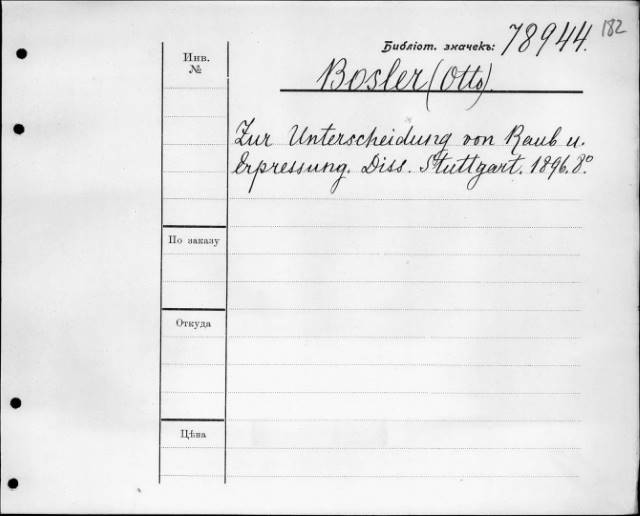 182
Библіот. значекъ: 78944.
Инв.
№
Bosler (Otto).
Zur Unterscheidung von Raub u.
Erpressung. Diss. Stuttgart. 1896. 8º.
По заказу
Откуда
Цѣна